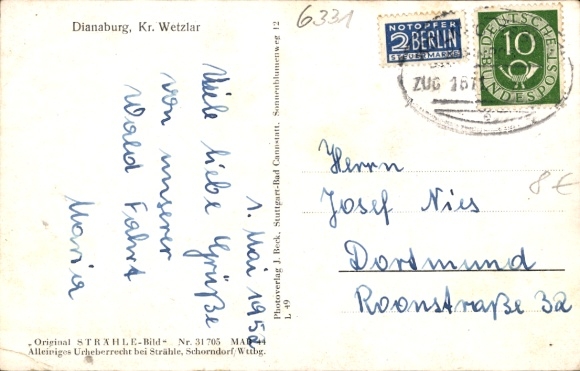 Dianaburg, Kr. Wetzlar
6331
NOTOPFER
2 BERLIN
STEUERMARKE
DEUTSCHE
BUNDESPOST
10
ZUG
1. Mai 195
Viele liebe Grüße
von unserer
Wald Fahrt
Maria
Photoverlag J. Beck, Stuttgart-Bad Cannstatt, Sonnenblumenweg 12
L 49
Herrn
Josef Nies
Dortmund
Roonstraße 32
8 €
„Original STRÄHLE-Bild" Nr. 31705
Alleiniges Urheberrecht bei Strähle, Schorndorf/Wttbg.